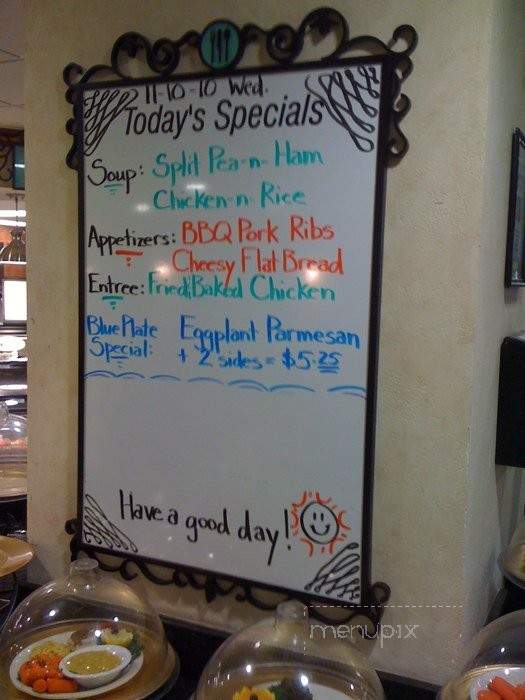 11-10-10 Wed.
Today's Specials
Soup: Split Pea-n-Ham
Chicken-n-Rice
Appetizers: BBQ Pork Ribs
Cheesy Flat Bread
Entree: Fried/Baked Chicken
Blue Plate Eggplant Parmesan
Special: + 2 sides = $5.25
Have a good day!
menupix